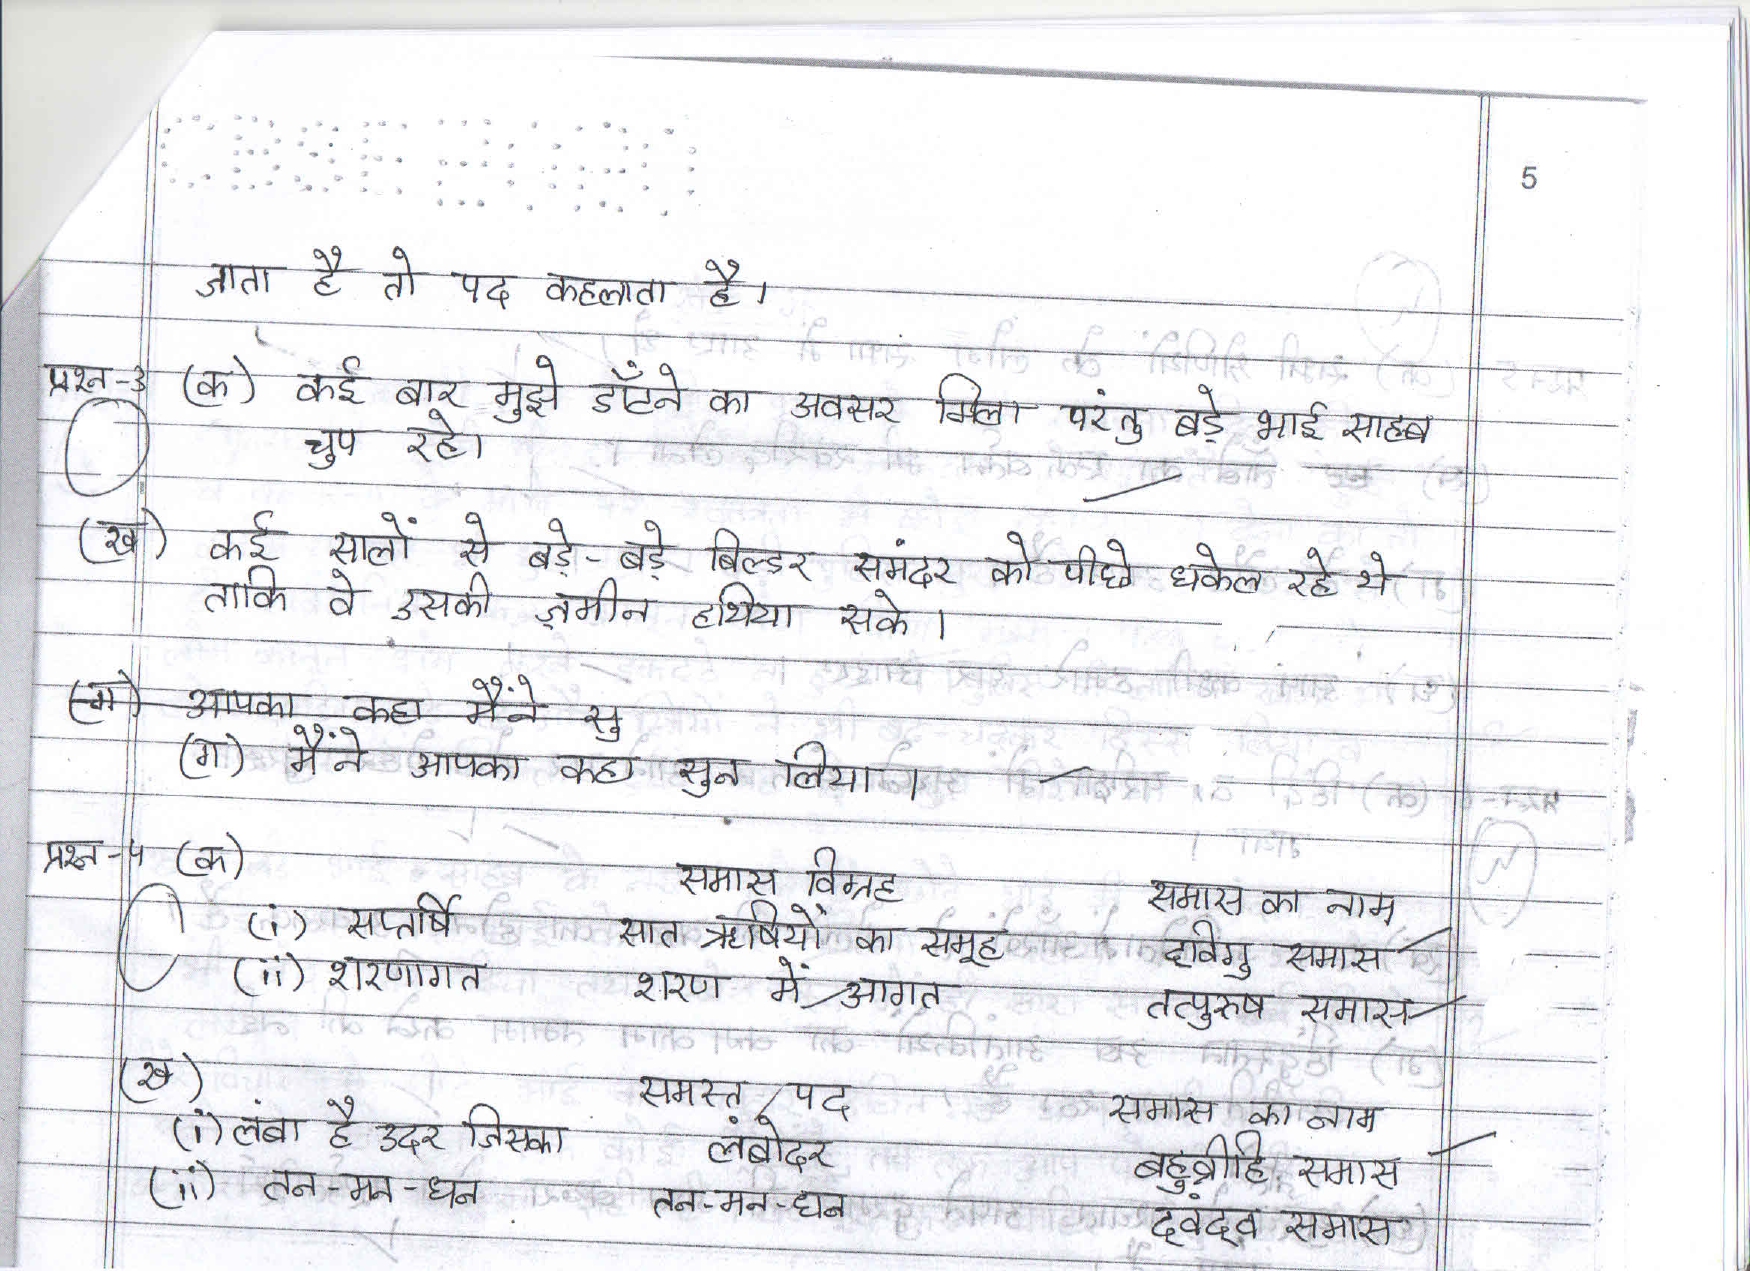 5
जाता है तो पद कहलाता है।
प्रश्न-3 (क) कई बार मुझे डाँटने का अवसर मिला परंतु बड़े भाई साहब
चुप रहे।
(ख) कई सालों से बड़े-बड़े बिल्डर समंदर को पीछे धकेल रहे थे
ताकि वे उसकी ज़मीन हथिया सके।
(ग) आपका कहा मैंने सु
(ग) मैंने आपका कहा सुन लिया।
प्रश्न-4 (क) समास विग्रह समास का नाम
(i) सप्तर्षि सात ऋषियों का समूह द्विगु समास
(ii) शरणागत शरण में आगत तत्पुरुष समास
(ख) समस्त पद समास का नाम
(i) लंबा है उदर जिसका लंबोदर बहुव्रीहि समास
(ii) तन-मन-धन तन-मन-धन द्वंद्व समास